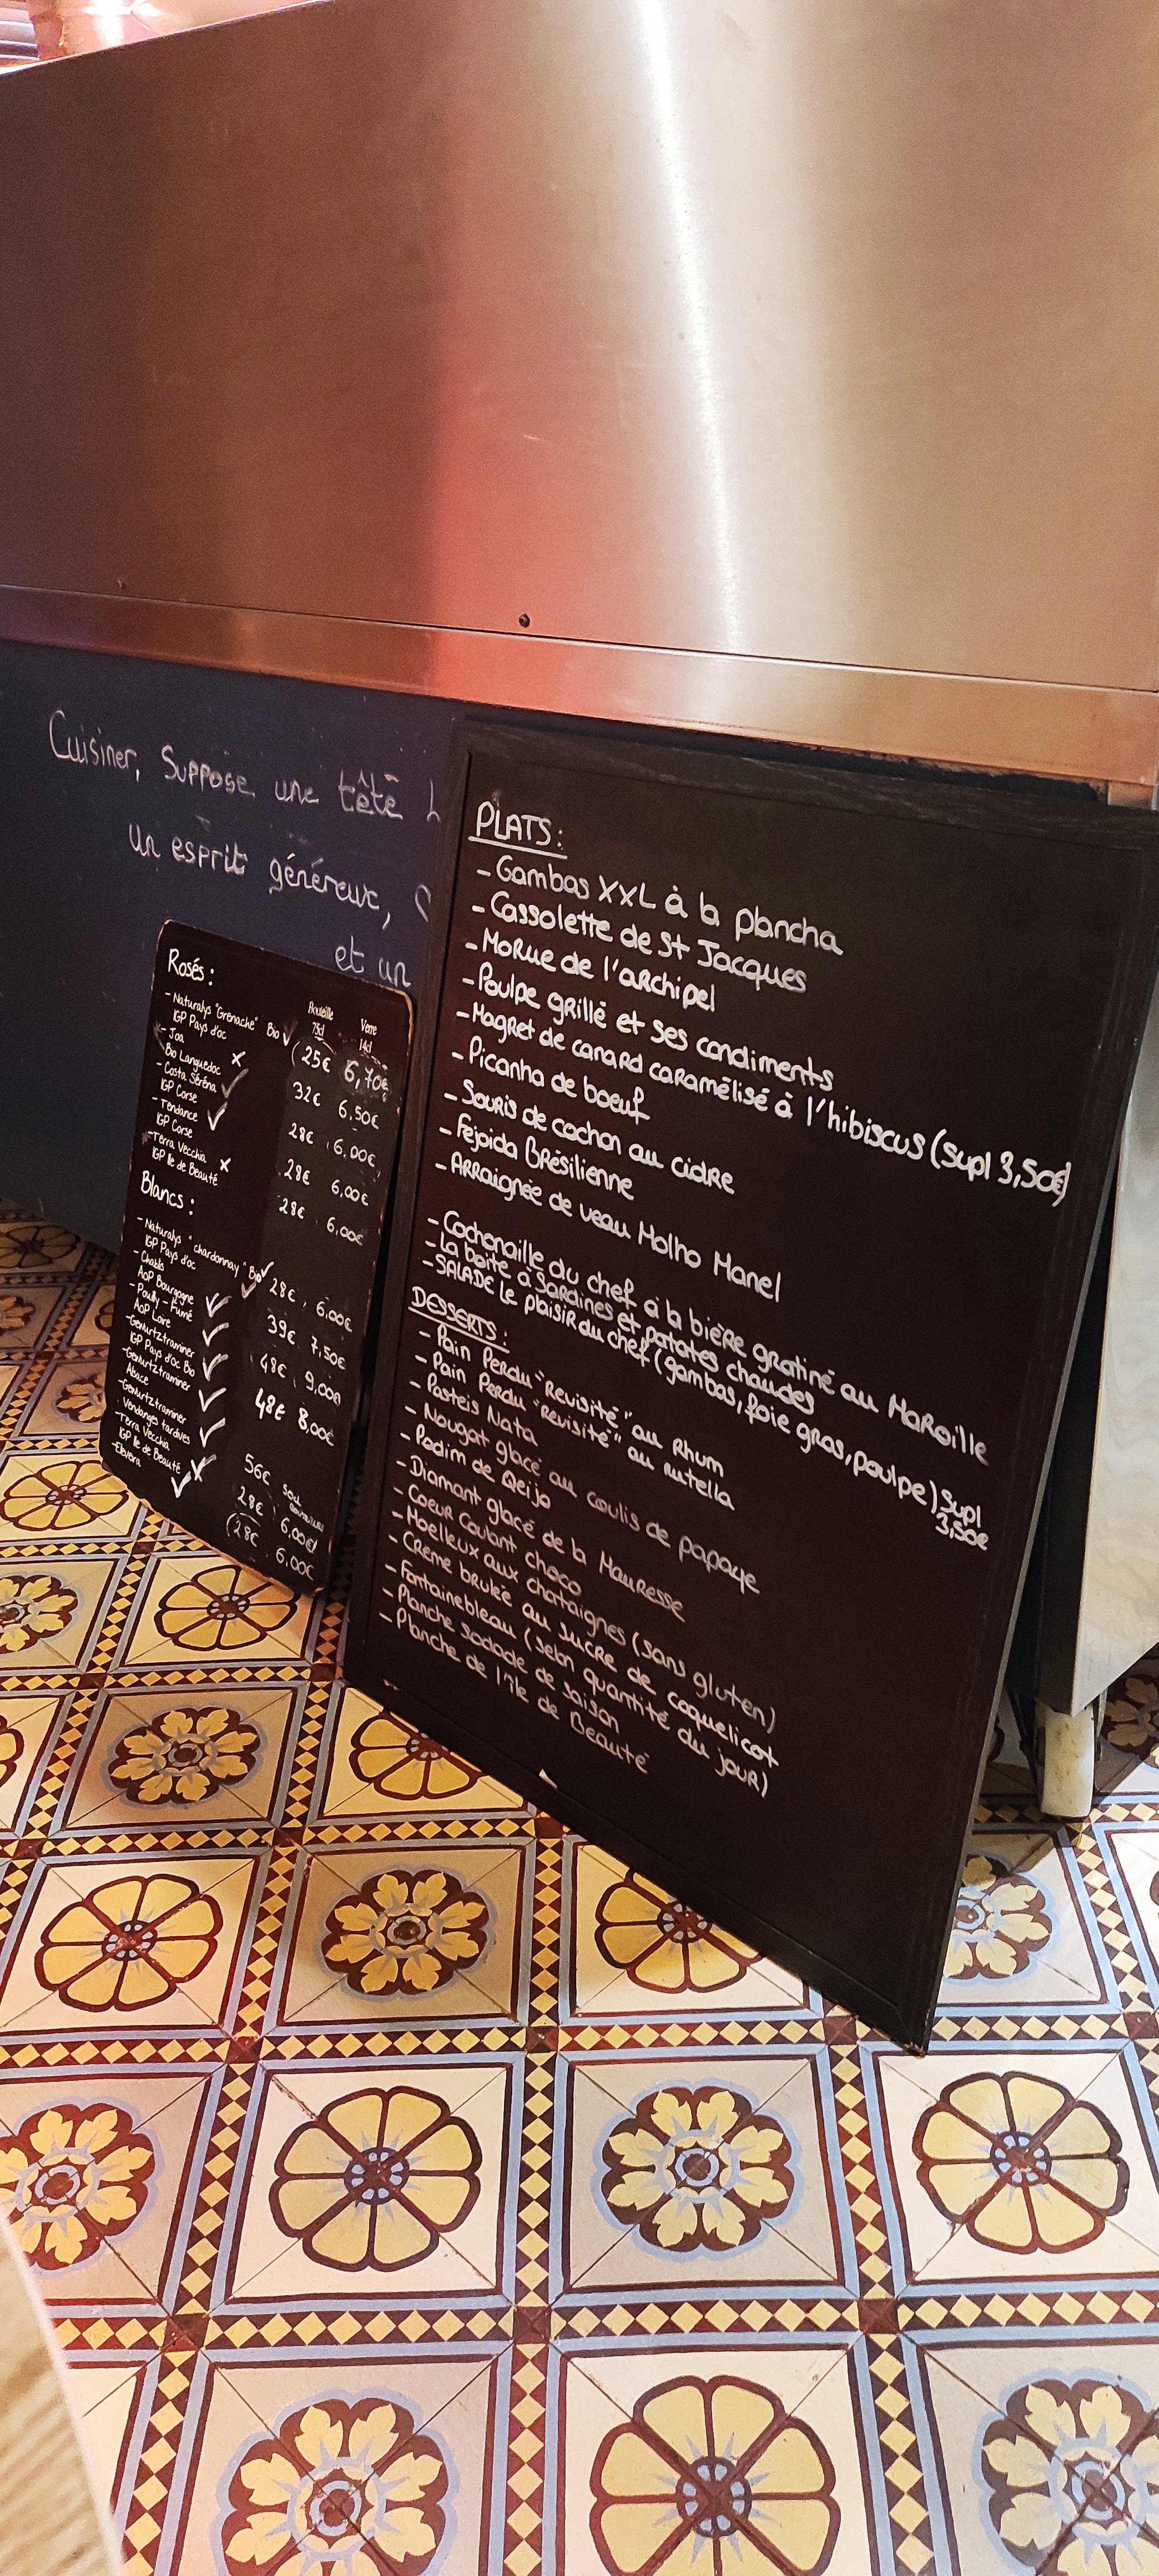 Cuisiner, Suppose une tête
un esprit généreux,
et un
Rosés:
Bouteille 75cl
Verre 14cl
- Naturalys "Grenache" Bio
IGP Pays d'oc
25€ 6,70€
- Joa
Bio Languedoc
32€ 6,50€
- Costa Séréna
IGP Corse
28€ 6,00€
- Tendance
IGP Corse
28€ 6,00€
- Terra Vecchia
IGP Ile de Beauté
28€ 6,00€
Blancs:
- Naturalys "chardonnay" Bio
IGP Pays d'oc
28€ 6,00€
- Chablis
AOP Bourgogne
39€ 7,50€
- Pouilly-Fumé
AOP Loire
48€ 9,00€
- Gewurtztraminer
IGP Pays d'Oc Bio
48€ 8,00€
- Gewurtztraminer
Alsace
- Gewurtztraminer
Vendanges tardives
56€
- Terra Vecchia
IGP Ile de Beauté
28€ 6,00€
28€ 6,00€
PLATS:
- Gambas XXL à la plancha
- Cassolette de St Jacques
- Morue de l'archipel
- Poulpe grillé et ses condiments
- Magret de canard caramélisé à l'hibiscus (Supl 3,50€)
- Picanha de boeuf
- Souris de cochon au cidre
- Fejoida Brésilienne
- Arraignée de veau Molho Manel
- Cochonaille du chef à la bière gratiné au Maroille
- La boite à Sardines et patates chaudes
- SALADE Le plaisir du chef (gambas, foie gras, poulpe) Supl 3,50€
DESSERTS:
- Pain Perdu "Revisité" au Rhum
- Pain Perdu "revisité" au nutella
- Pasteis Nata
- Nougat glacé au coulis de papaye
- Podim de Qeijo
- Diamant glacé de la Mauresse
- Coeur Coulant choco
- Moelleux aux chataignes (sans gluten)
- Creme brulée au sucre de coquelicot
- Fontainebleau (selon quantité du jour)
- Planche Salade de saison
- Planche de l'île de Beauté